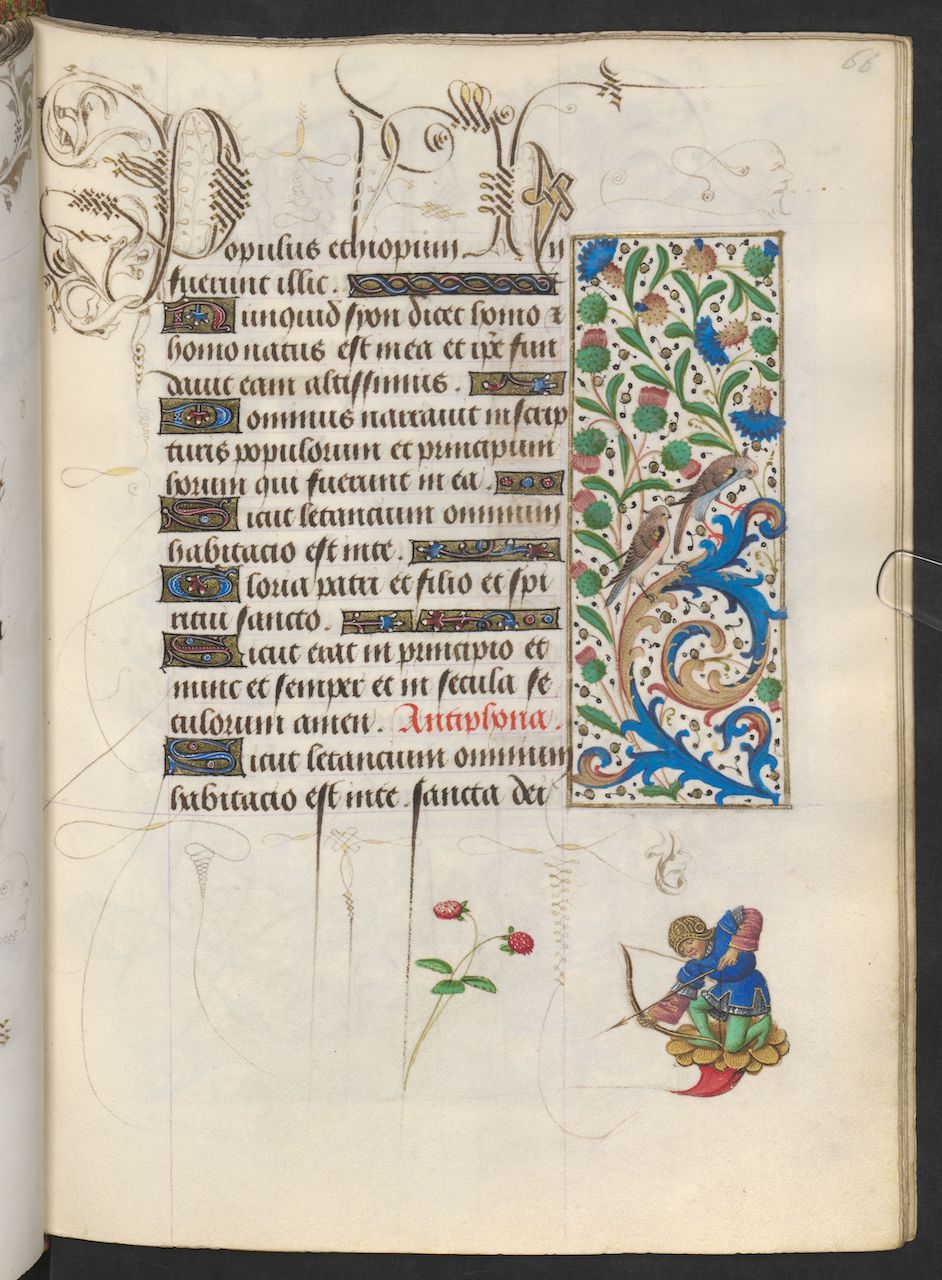 66
Populus ethiopum hii
fuerunt illic.
Nunquid syon dicet homo ⁊
homo natus est in ea et ip̄e fun
davit eam altissimus.
Dominus narravit in scrip
turis populorum et principum
horum qui fuerunt in ea.
Sicut letancium omnium
habitacio est in te.
Gloria patri et filio et spi
ritui sancto.
Sicut erat in principio et
nunc et semper et in secula se
culorum amen. Antiphona.
Sicut letancium omnium
habitacio est in te. sancta dei